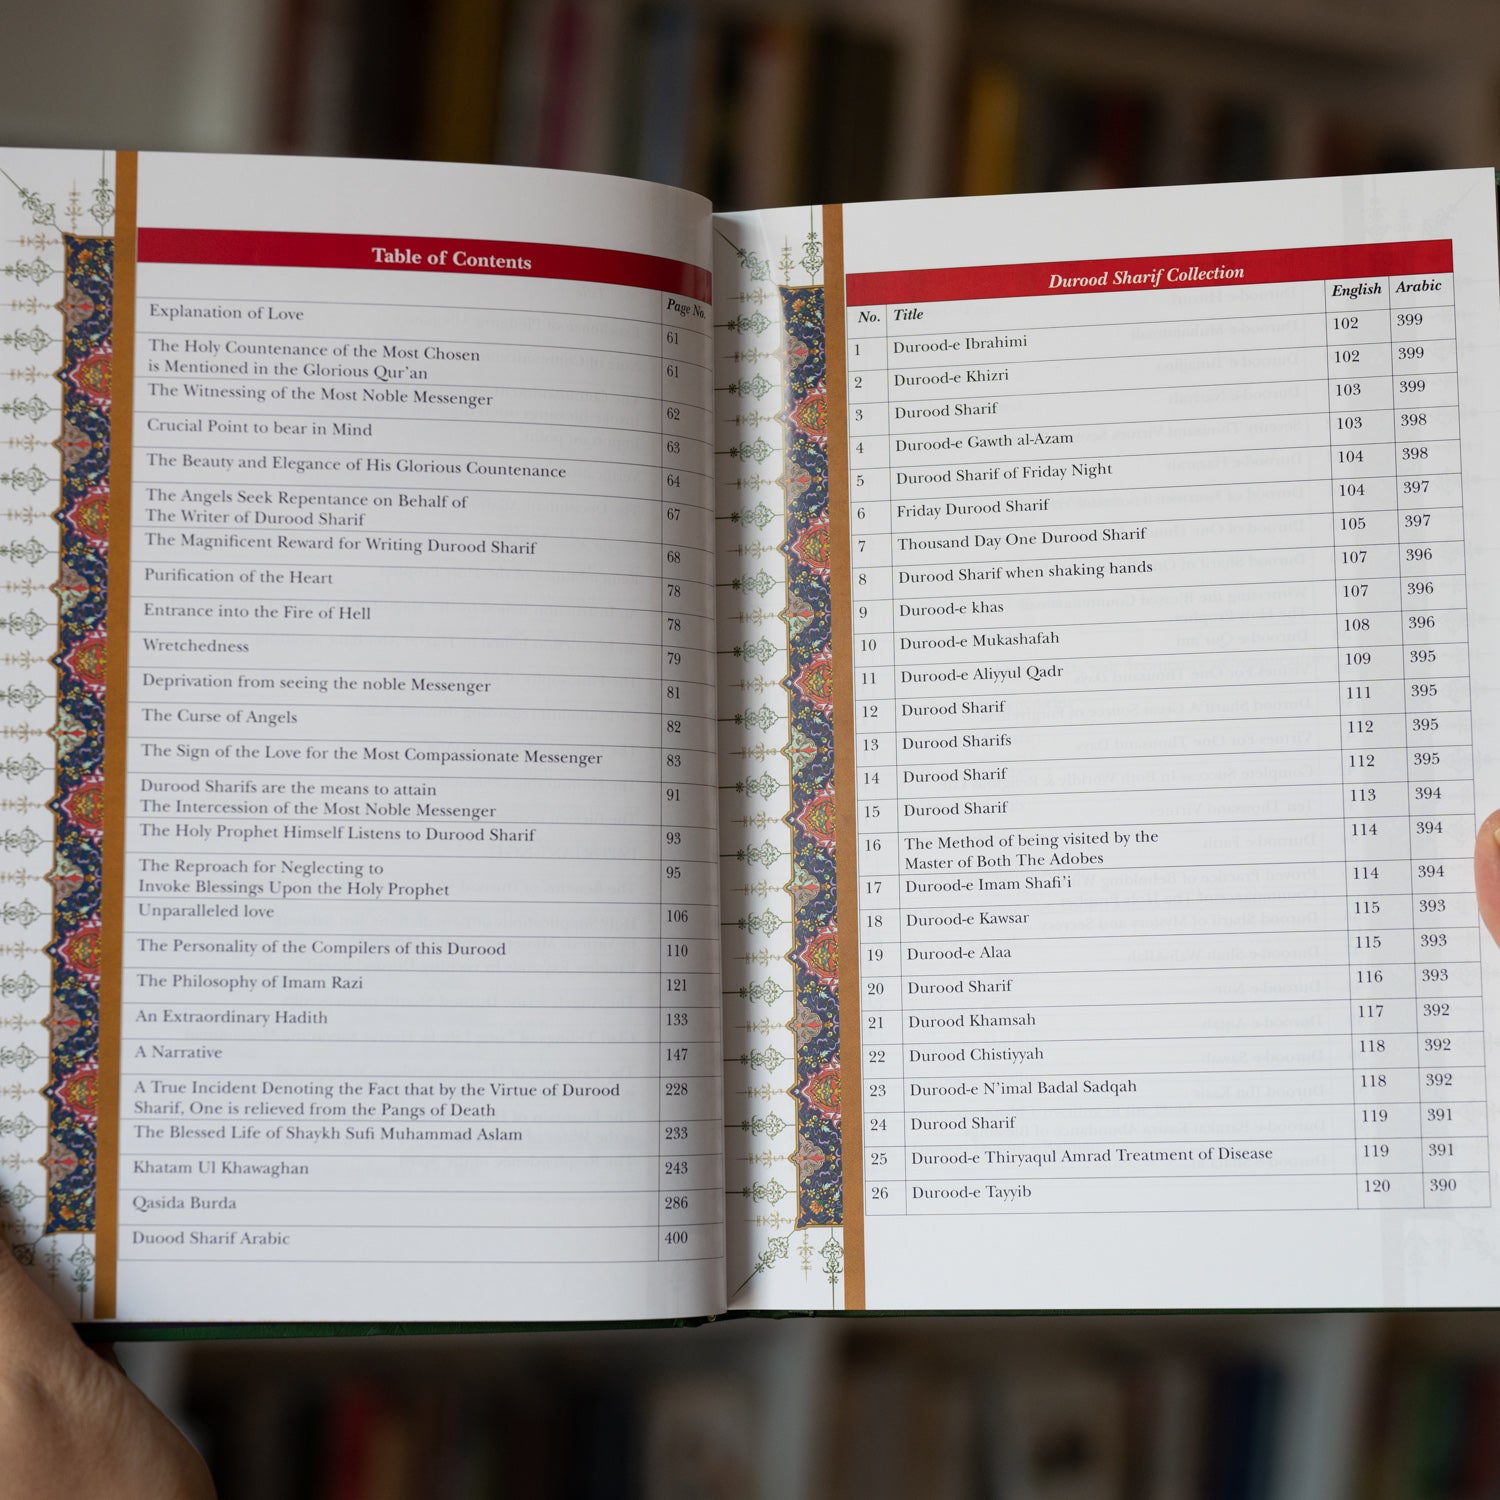 Table of Contents
Page No.
Explanation of Love 61
The Holy Countenance of the Most Chosen
is Mentioned in the Glorious Qur'an 61
The Witnessing of the Most Noble Messenger 62
Crucial Point to bear in Mind 63
The Beauty and Elegance of His Glorious Countenance 64
The Angels Seek Repentance on Behalf of
The Writer of Durood Sharif 67
The Magnificent Reward for Writing Durood Sharif 68
Purification of the Heart 78
Entrance into the Fire of Hell 78
Wretchedness 79
Deprivation from seeing the noble Messenger 81
The Curse of Angels 82
The Sign of the Love for the Most Compassionate Messenger 83
Durood Sharifs are the means to attain
The Intercession of the Most Noble Messenger 91
The Holy Prophet Himself Listens to Durood Sharif 93
The Reproach for Neglecting to
Invoke Blessings Upon the Holy Prophet 95
Unparalleled love 106
The Personality of the Compilers of this Durood 110
The Philosophy of Imam Razi 121
An Extraordinary Hadith 133
A Narrative 147
A True Incident Denoting the Fact that by the Virtue of Durood
Sharif, One is relieved from the Pangs of Death 228
The Blessed Life of Shaykh Sufi Muhammad Aslam 233
Khatam Ul Khawaghan 243
Qasida Burda 286
Duood Sharif Arabic 400
Durood Sharif Collection
No. Title English Arabic
1 Durood-e Ibrahimi 102 399
2 Durood-e Khizri 102 399
3 Durood Sharif 103 399
4 Durood-e Gawth al-Azam 103 398
5 Durood Sharif of Friday Night 104 398
6 Friday Durood Sharif 104 397
7 Thousand Day One Durood Sharif 105 397
8 Durood Sharif when shaking hands 107 396
9 Durood-e khas 107 396
10 Durood-e Mukashafah 108 396
11 Durood-e Aliyyul Qadr 109 395
12 Durood Sharif 111 395
13 Durood Sharifs 112 395
14 Durood Sharif 112 395
15 Durood Sharif 113 394
16 The Method of being visited by the 114 394
Master of Both The Adobes
17 Durood-e Imam Shafi'i 114 394
18 Durood-e Kawsar 115 393
19 Durood-e Alaa 115 393
20 Durood Sharif 116 393
21 Durood Khamsah 117 392
22 Durood Chistiyyah 118 392
23 Durood-e N'imal Badal Sadqah 118 392
24 Durood Sharif 119 391
25 Durood-e Thiryaqul Amrad Treatment of Disease 119 391
26 Durood-e Tayyib 120 390